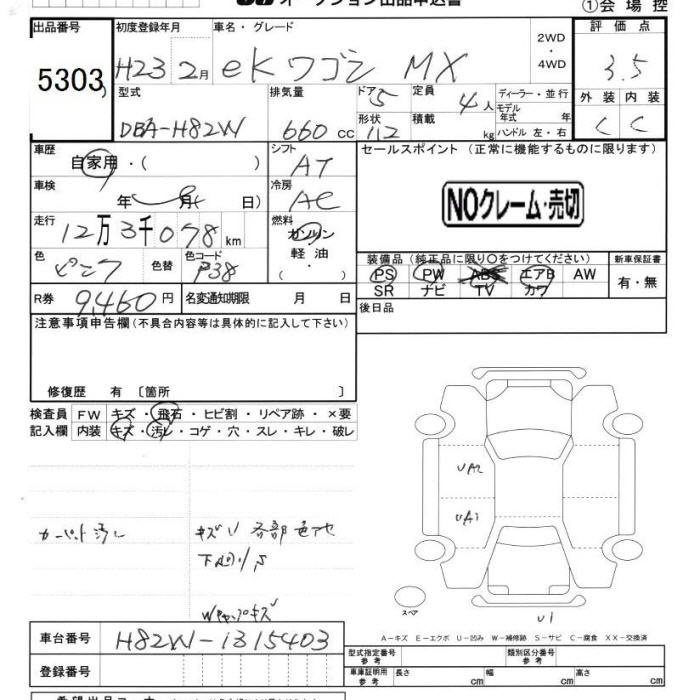 オークション出品申込書
①会場控
出品番号 初度登録年月 車名・グレード 2WD・4WD 評価点
5303 H23 2月 eKワゴン MX 3.5
型式 排気量 ドア 5 定員 4人 ディーラー・並行 外装 内装
DBA-H82W 660cc 形状 112 積載 kg モデル年式 年 C C
ハンドル 左・右
車歴 シフト セールスポイント (正常に機能するものに限ります)
自家用・( ) AT
車検 年 月 日) 冷房 AC NOクレーム・売切
走行 12万3千078km 燃料
ガソリン
軽油
・( )
色 ピンク 色替 色コード P38
装備品 (純正品に限り○をつけてください) 新車保証書
PS PW ABS エアB AW 有・無
SR ナビ TV カワ
R券 9,460円 名変通知期限 月 日
後日品
注意事項申告欄(不具合内容等は具体的に記入して下さい)
修復歴 有 [箇所 ]
検査員 FW キズ・飛石・ヒビ割・リペア跡・×要
記入欄 内装 キズ・汚レ・コゲ・穴・スレ・キレ・破レ
UA2
UA1
カーペット汚レ キズU 各部色アセ
下廻リS
スペア
U1
A－キズ E－エクボ U－凹み W－補修跡 S－サビ C－腐食 XX－交換済
車台番号 H82W-1315403
型式指定番号 参考 類別区分番号 参考
登録番号 車庫証明用 参考 長さ cm 幅 cm 高さ cm